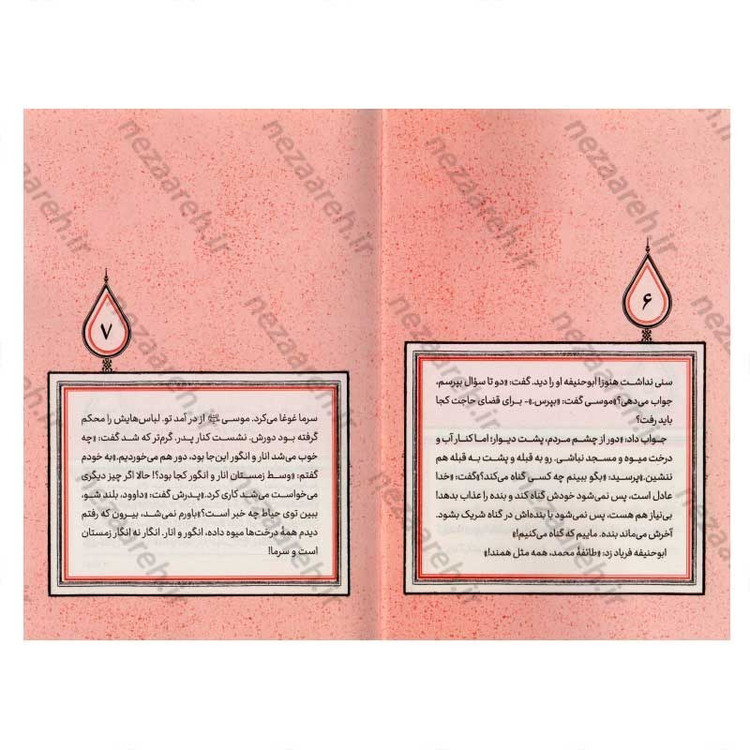 ۶
سنی نداشت هنوز! ابوحنیفه او را دید. گفت: «دو تا سؤال بپرسم،
جواب می‌دهی؟» موسی گفت: «بپرس.» - برای قضای حاجت کجا
باید رفت؟
جواب داد: «دور از چشم مردم، پشت دیوار؛ اما کنار آب و
درخت میوه و مسجد نباشی. رو به قبله و پشت به قبله هم
ننشین.» پرسید: «بگو ببینم چه کسی گناه می‌کند؟» گفت: «خدا
عادل است، پس نمی‌شود خودش گناه کند و بنده را عذاب بدهد!
بی‌نیاز هم هست، پس نمی‌شود با بنده‌اش در گناه شریک بشود.
آخرش می‌ماند بنده. ماییم که گناه می‌کنیم!»
ابوحنیفه فریاد زد: «طائفهٔ محمد، همه مثل همند!»
۷
سرما غوغا می‌کرد. موسی از در آمد تو. لباس‌هایش را محکم
گرفته بود دورش. نشست کنار پدر. گرم‌تر که شد گفت: «چه
خوب می‌شد انار و انگور این‌جا بود، دور هم می‌خوردیم.» به خودم
گفتم: «وسط زمستان انار و انگور کجا بود؟! حالا اگر چیز دیگری
می‌خواست می‌شد کاری کرد.» پدرش گفت: «داوود، بلند شو،
ببین توی حیاط چه خبر است؟» باورم نمی‌شد، بیرون که رفتم
دیدم همهٔ درخت‌ها میوه داده، انگور و انار. انگار نه انگار زمستان
است و سرما!
nezaareh.ir